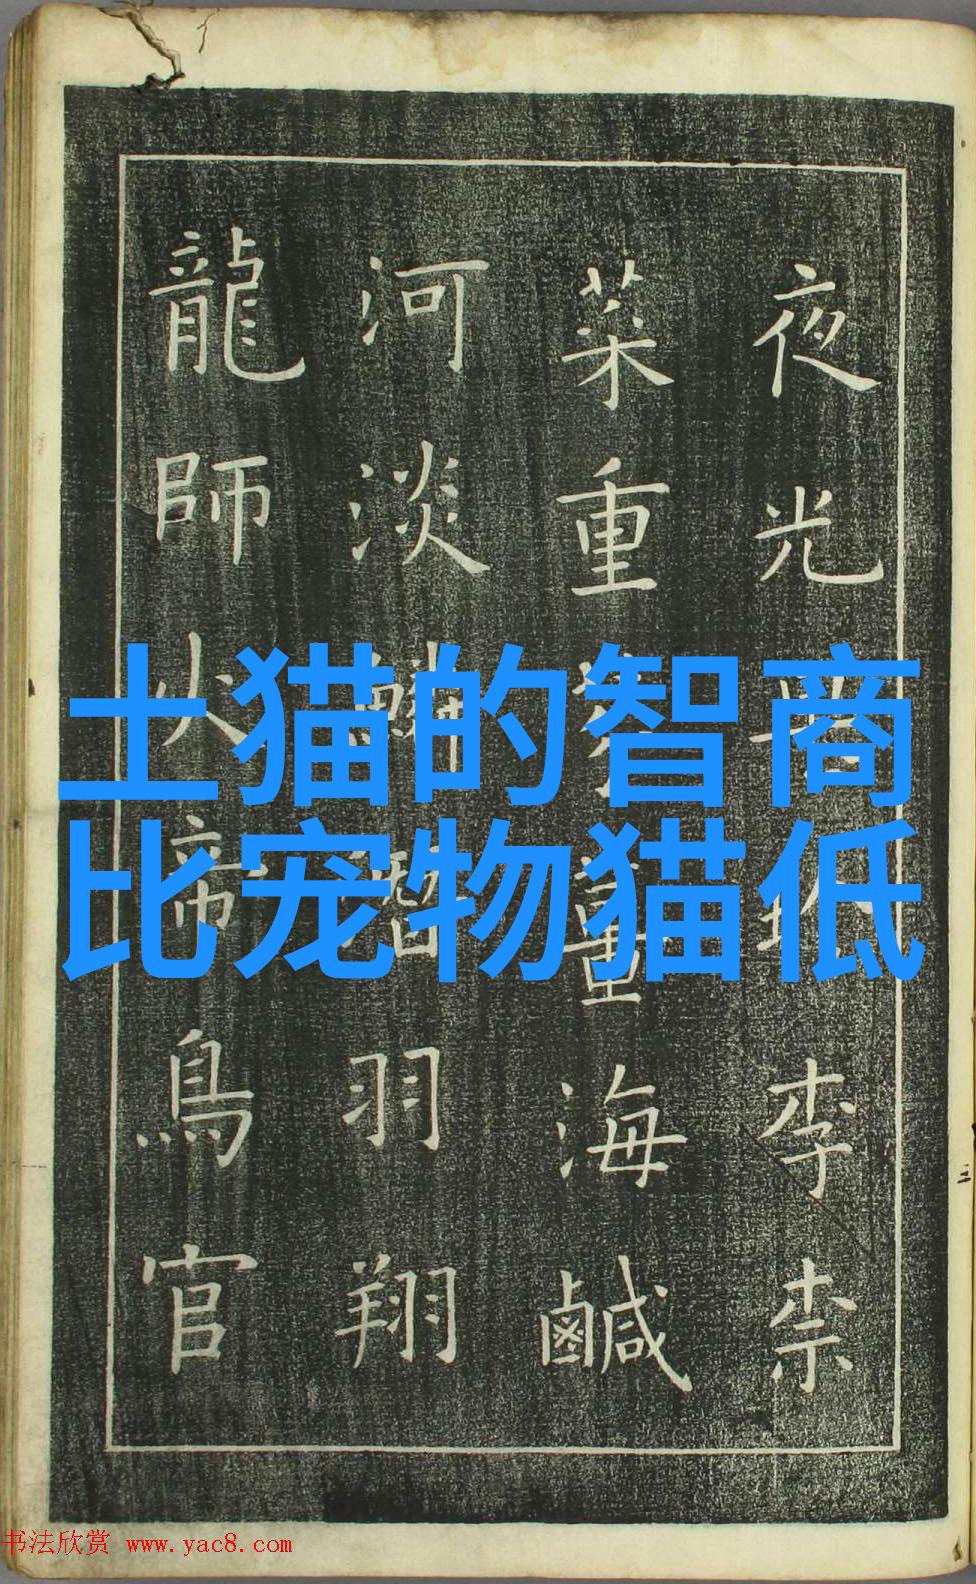 土猫的智商
比宠物猫低
夜光李柰
菜重海鹹
河淡鱗潛羽翔
龍師火帝鳥官
书法欣赏 www.yac8.com